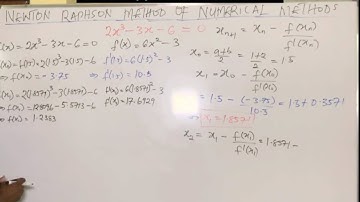 NEWTON RAPHSON METHOD OF NUMERICAL METHODS
2x³-3x-6=0
x_{n+1} = x_n - f(x_n)/f'(x_n)
f(x) = 2x³-3x-6=0
f'(x) = 6x²-3
f(x₀) = f(1.5) = 2(1.5)³-3(1.5)-6
f'(1.5) = 6(1.5)²-3
⇒ f(x₀) = -3.75
f'(1.5) = 10.5
f(x₁) = 2(1.8571)³-3(1.8571)-6
f'(x₁) = 6(1.8571)²-3
⇒ f(x₁) = 12.8096-5.5713-6
f'(x₁) = 17.6929
⇒ f(x₁) = 1.2383
x₀ = a+b/2 = 1+2/2 = 1.5
x₁ = x₀ - f(x₀)/f'(x₀)
= 1.5 - (-3.75)/10.5 = 1.5+0.3571
⇒ x₁ = 1.8571
x₂ = x₁ - f(x₁)/f'(x₁) = 1.8571 -